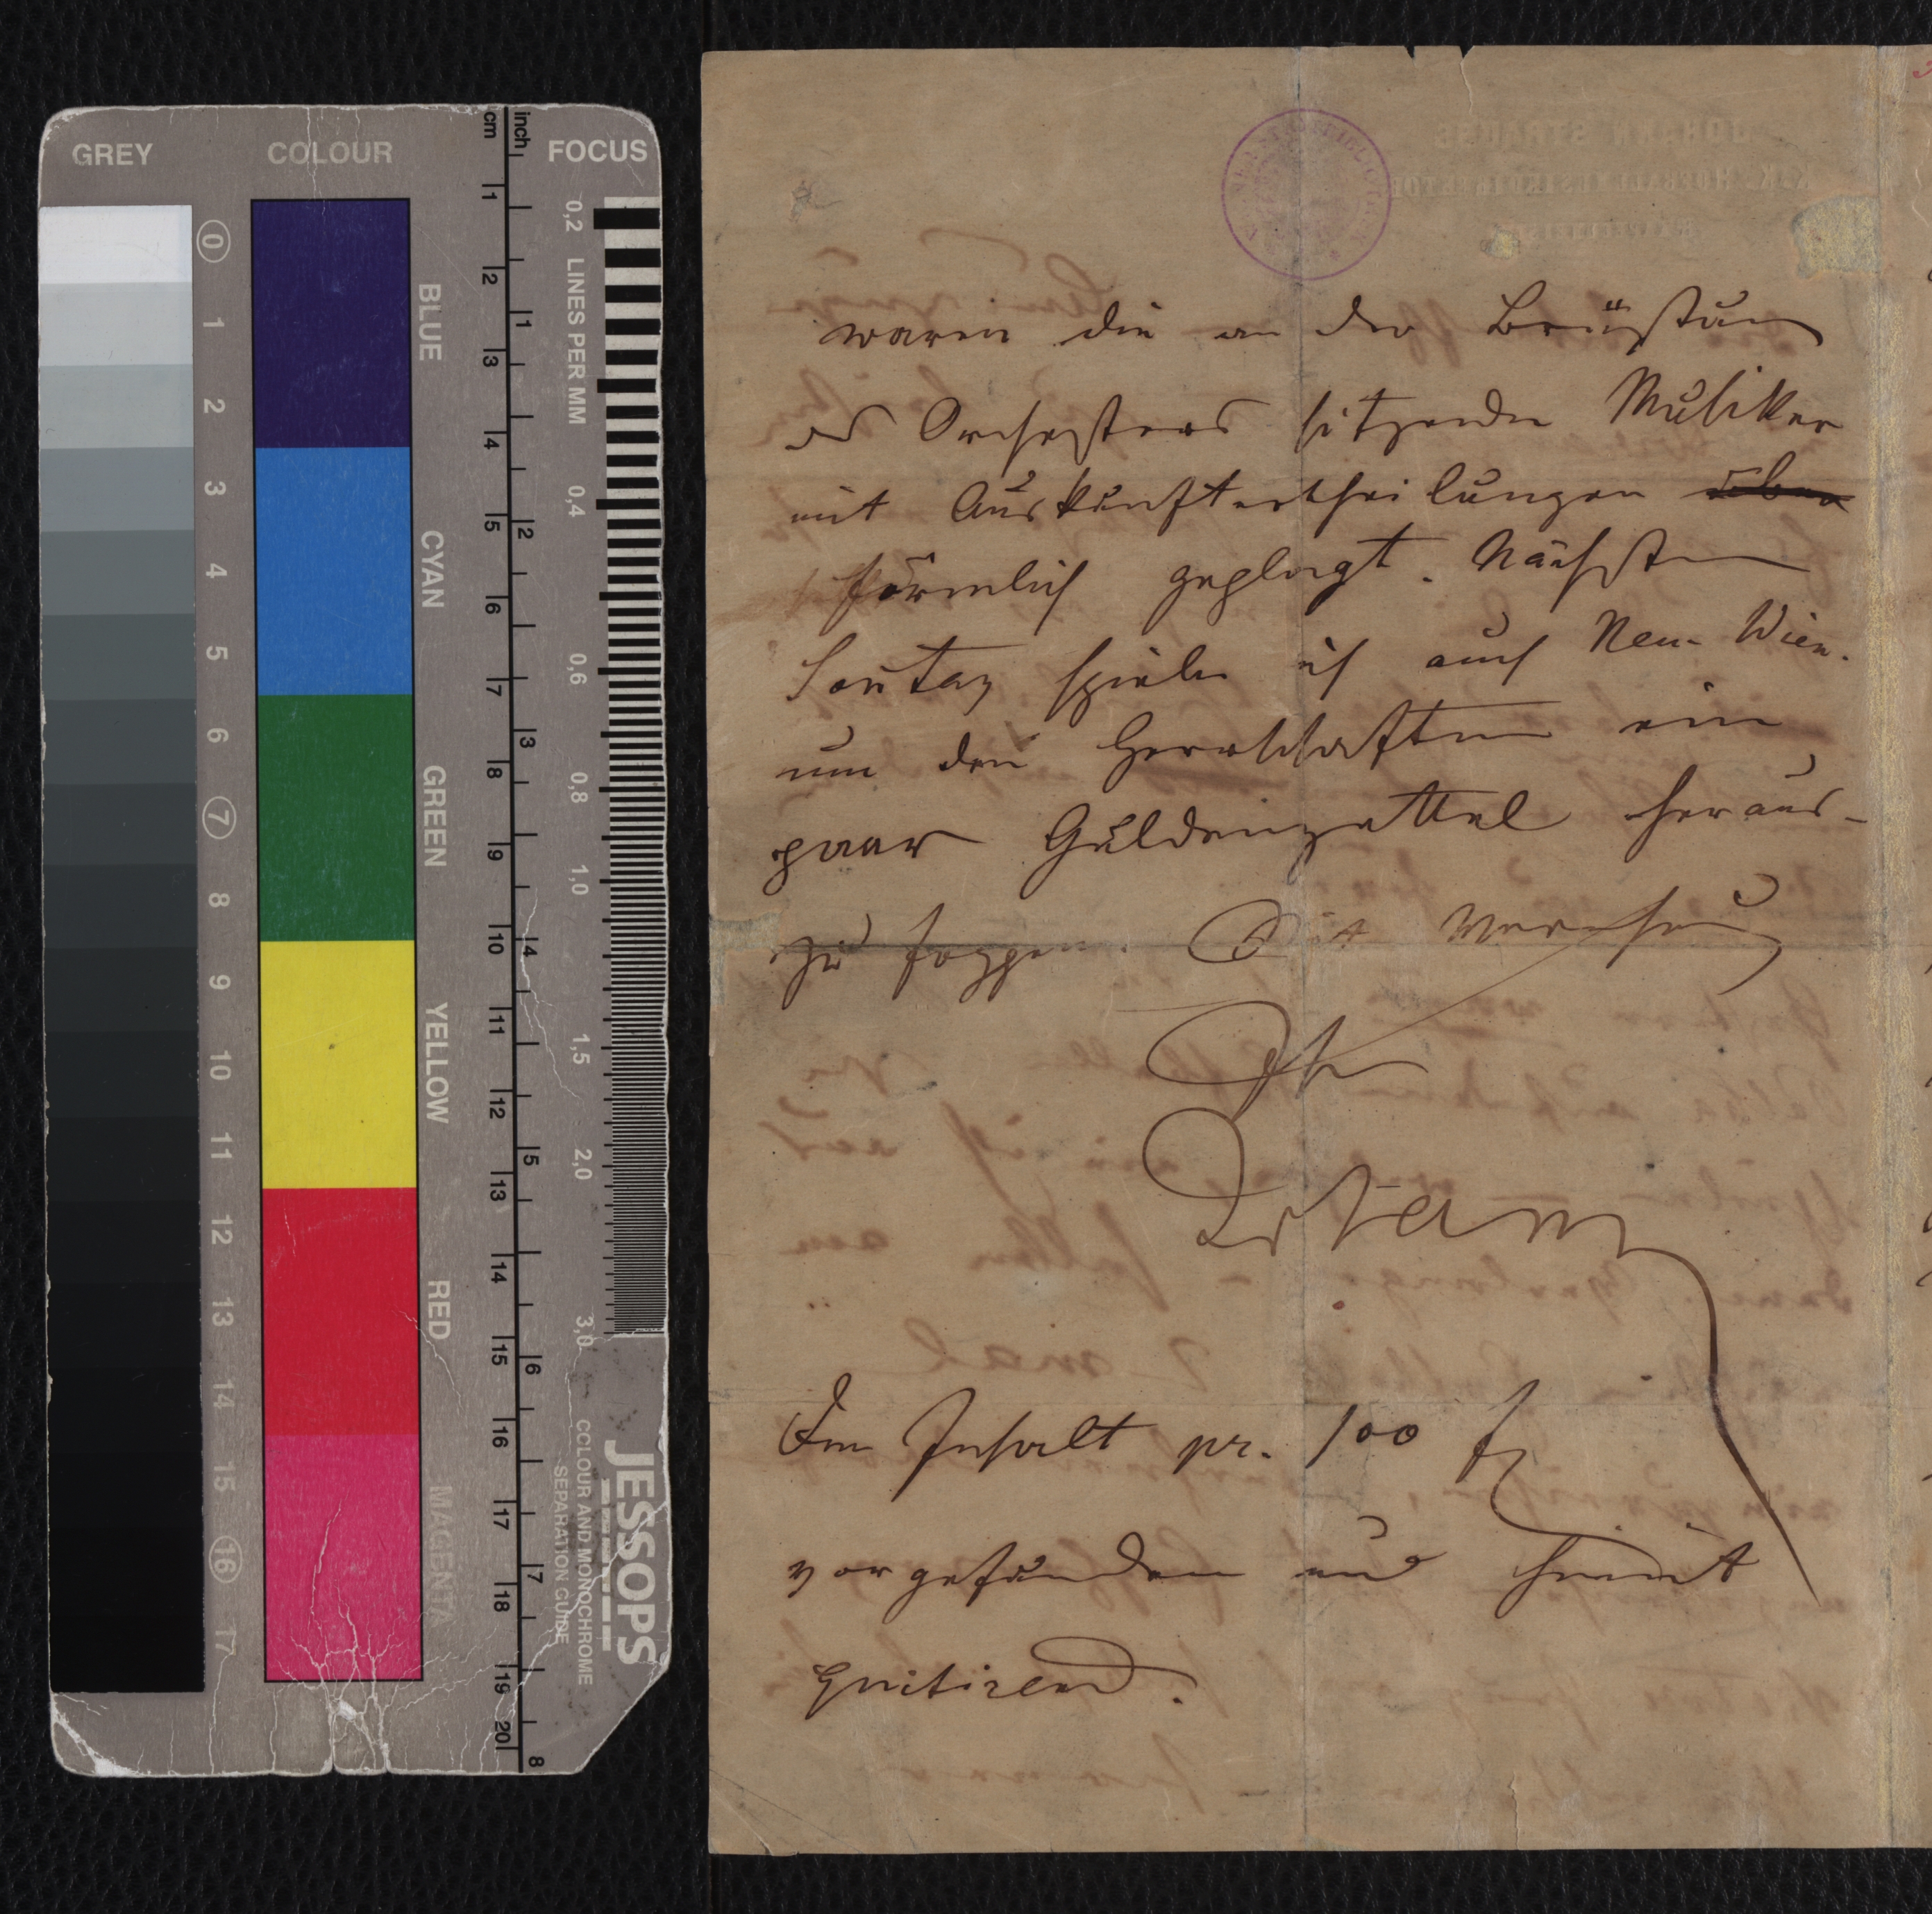 GREY
COLOUR
FOCUS
cm
inch
0 1 2 3 4 5 6 7 8 9 10 11 12 13 14 15 16 17
BLUE
CYAN
GREEN
YELLOW
RED
MAGENTA
1 2 3 4 5 6 7 8 9 10 11 12 13 14 15 16 17 18 19 20
1 2 3 4 5 6 7 8
LINES PER MM
0,2 0,4 0,6 0,8 1,0 1,5 2,0 3,0
JESSOPS
COLOUR AND MONOCHROME
SEPARATION GUIDE
JOHANN STRAUSS
waren die an der Brüstung
des Orchesters sitzenden Musiker
mit Auskunftertheilungen über
förmlich geplagt. Nächsten
Sontag spiele ich auch Neu-Wien.
um den Herrschaften ein
paar Guldenzettel heraus-
zu foppen. Mit Verehrung
Ihr
Strauss
Den Inhalt pr. 100 f
vorgefunden und hiemit
quitirend.